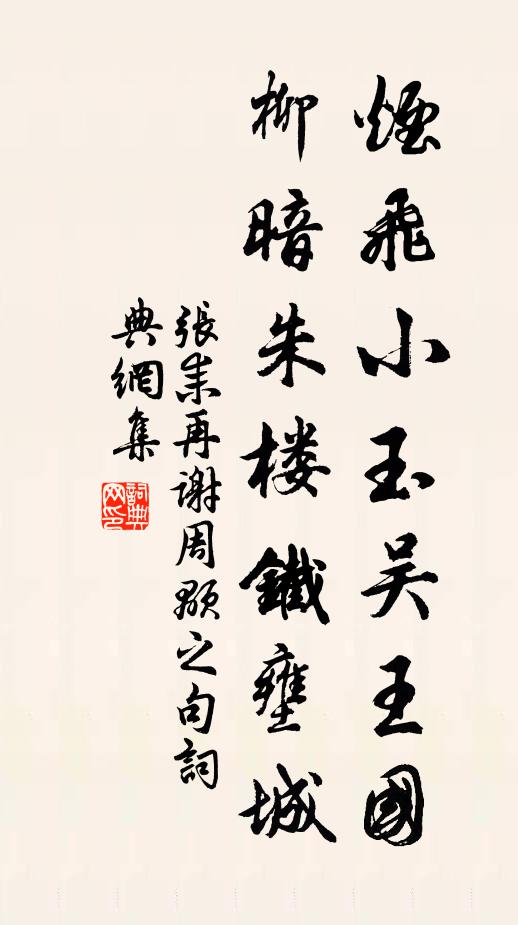 煙飛小玉吳王國
柳暗朱楼鐵壅城
張耒再謝周顒之句詞
典網集
詞典網印